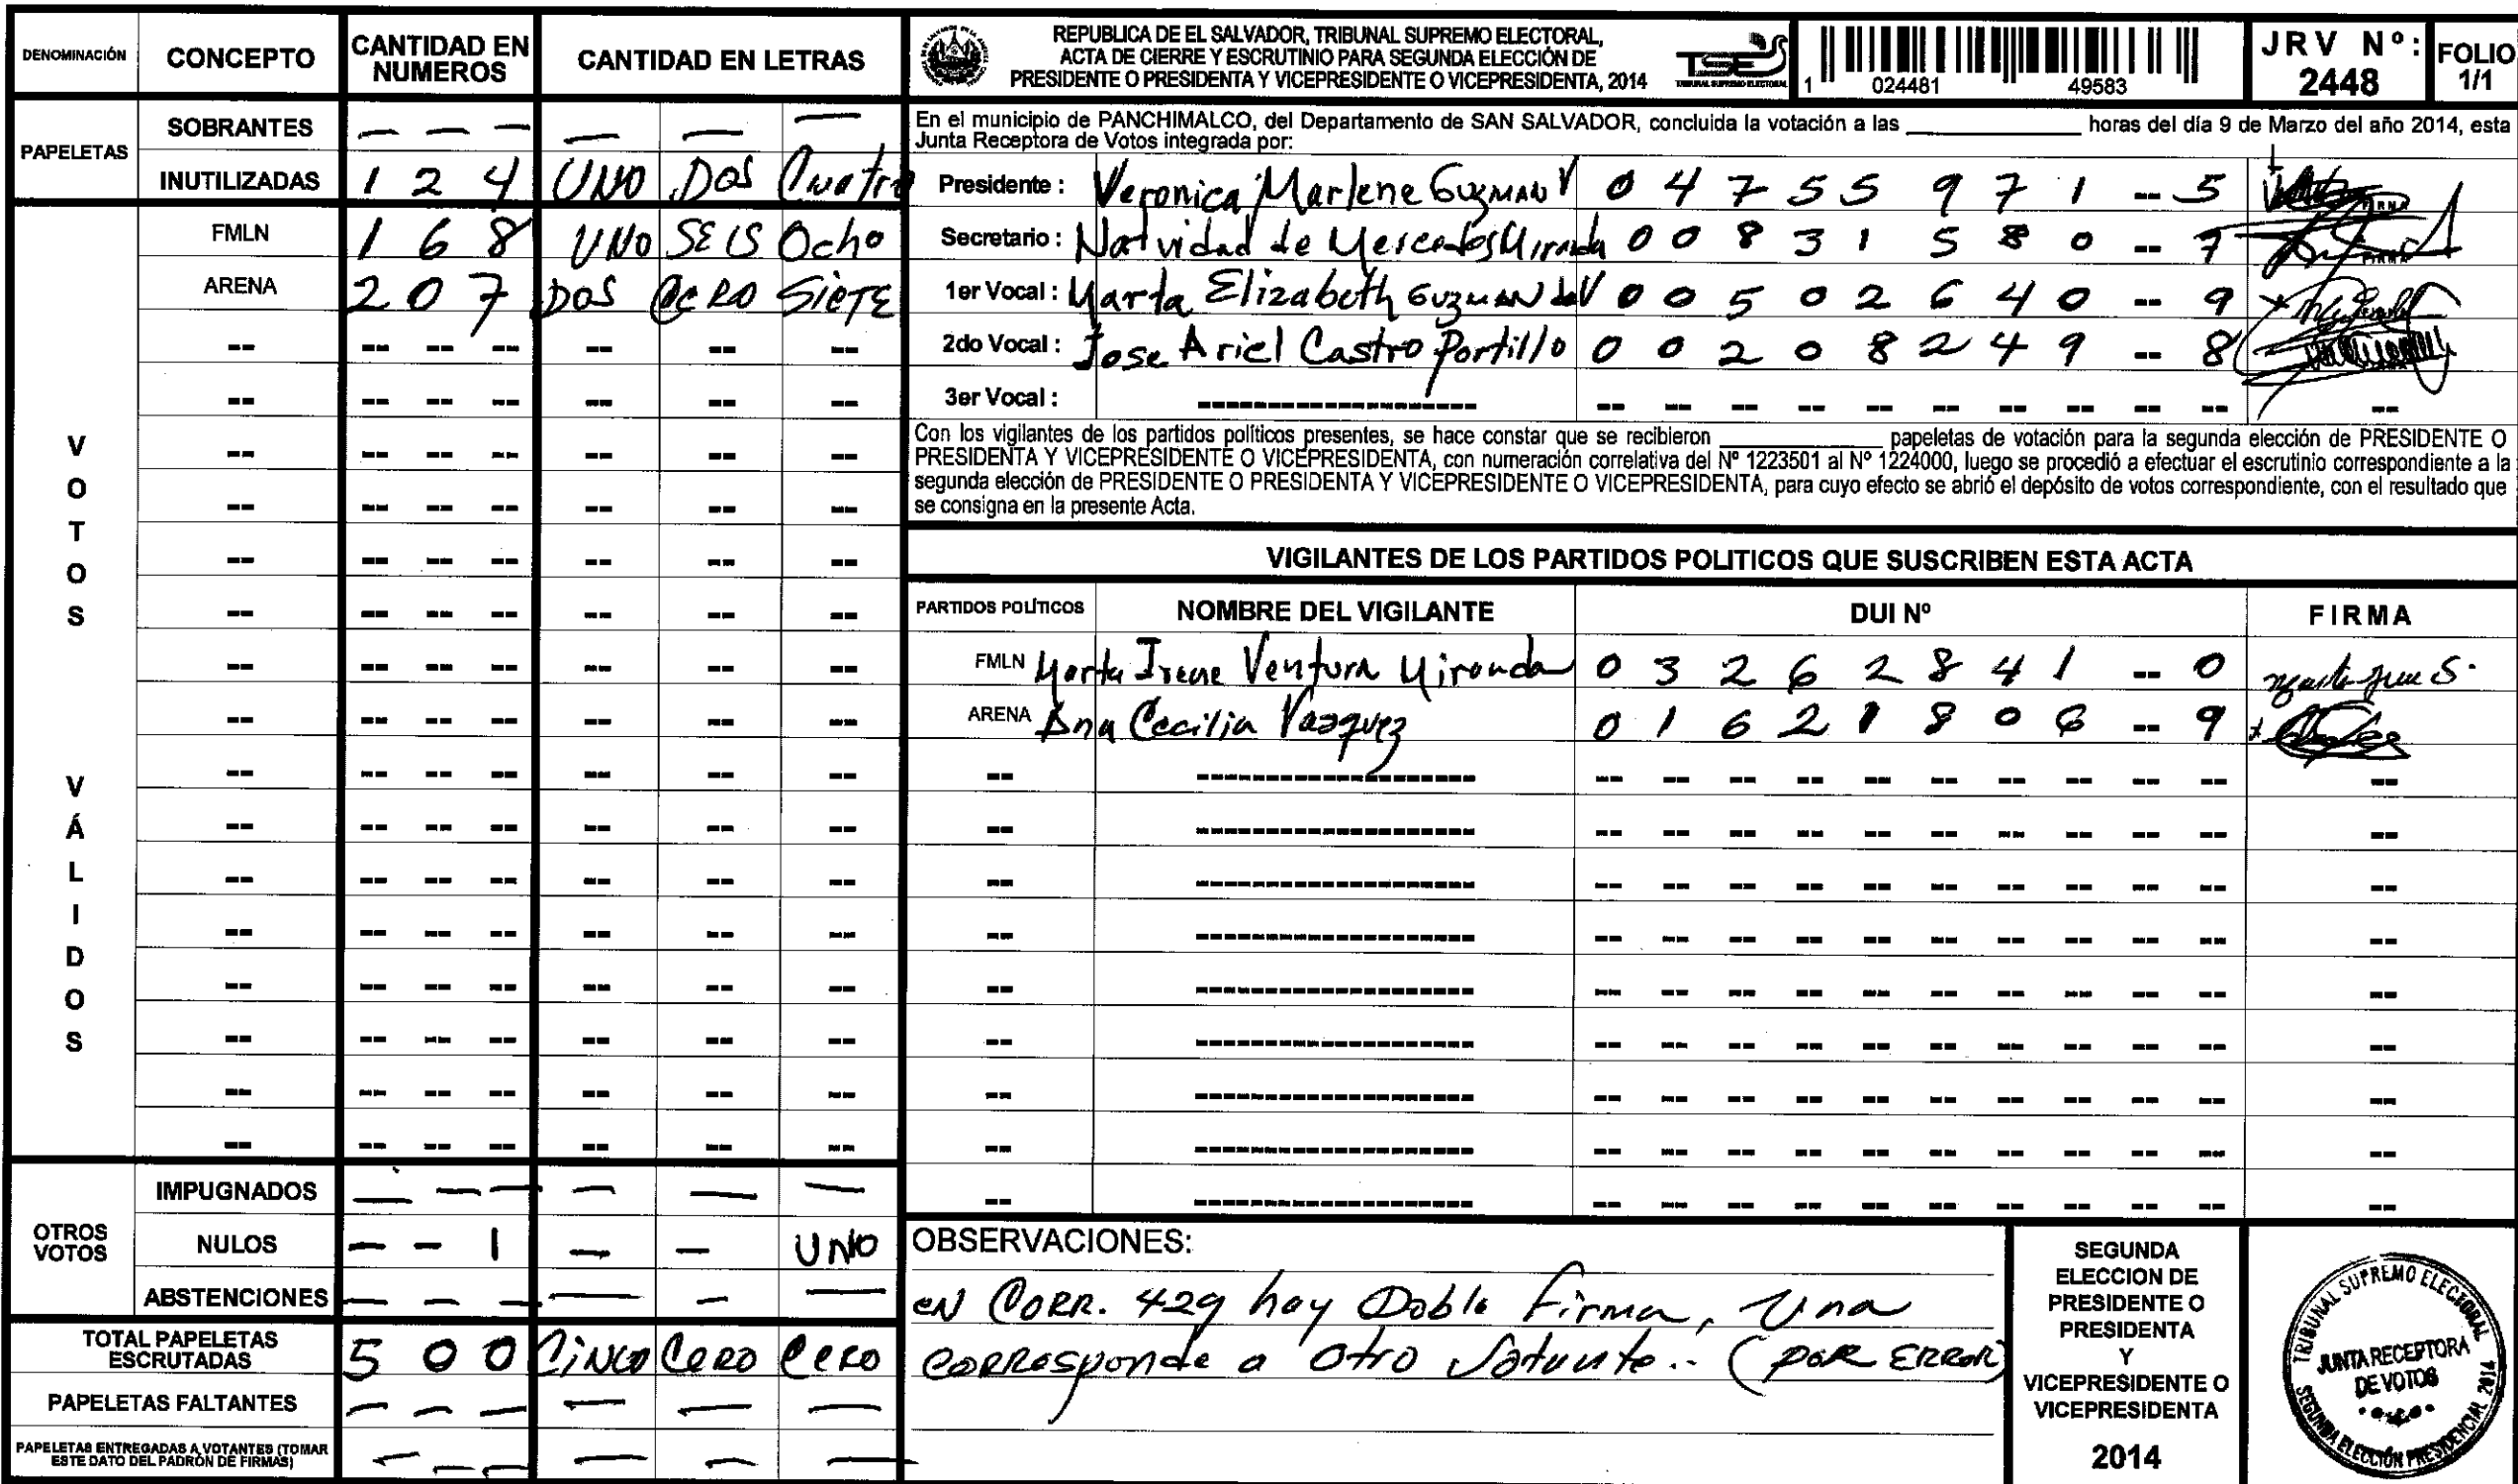 DENOMINACIÓN CONCEPTO CANTIDAD EN NUMEROS CANTIDAD EN LETRAS
PAPELETAS
SOBRANTES — — — — — —
INUTILIZADAS 1 2 4 UNO DOS Cuatro
VOTOS VÁLIDOS
FMLN 1 6 8 UNO SEIS Ocho
ARENA 2 0 7 DOS CERO SIETE
OTROS VOTOS
IMPUGNADOS — — — — — —
NULOS — — 1 — — UNO
ABSTENCIONES — — — — — —
TOTAL PAPELETAS ESCRUTADAS 5 0 0 CINCO CERO CERO
PAPELETAS FALTANTES — — — — — —
PAPELETAS ENTREGADAS A VOTANTES (TOMAR ESTE DATO DEL PADRÓN DE FIRMAS) — — — — — —
REPUBLICA DE EL SALVADOR, TRIBUNAL SUPREMO ELECTORAL,
ACTA DE CIERRE Y ESCRUTINIO PARA SEGUNDA ELECCIÓN DE
PRESIDENTE O PRESIDENTA Y VICEPRESIDENTE O VICEPRESIDENTA, 2014
TSE
TRIBUNAL SUPREMO ELECTORAL
1 024481 49583
JRV Nº: 2448
FOLIO 1/1
En el municipio de PANCHIMALCO, del Departamento de SAN SALVADOR, concluida la votación a las ________ horas del día 9 de Marzo del año 2014, esta
Junta Receptora de Votos integrada por:
Presidente: Veronica Marlene GUZMAN V 0 4 7 5 5 9 7 1 -- 5
Secretario: Natvidad de Mercedes Miranda 0 0 8 3 1 5 8 0 -- 7
1er Vocal: Marta Elizabeth GUZMAN de V 0 0 5 0 2 6 4 0 -- 9
2do Vocal: Jose Ariel Castro Portillo 0 0 2 0 8 2 4 9 -- 8
3er Vocal:
Con los vigilantes de los partidos políticos presentes, se hace constar que se recibieron ________ papeletas de votación para la segunda elección de PRESIDENTE O
PRESIDENTA Y VICEPRESIDENTE O VICEPRESIDENTA, con numeración correlativa del Nº 1223501 al Nº 1224000, luego se procedió a efectuar el escrutinio correspondiente a la
segunda elección de PRESIDENTE O PRESIDENTA Y VICEPRESIDENTE O VICEPRESIDENTA, para cuyo efecto se abrió el depósito de votos correspondiente, con el resultado que
se consigna en la presente Acta.
VIGILANTES DE LOS PARTIDOS POLITICOS QUE SUSCRIBEN ESTA ACTA
PARTIDOS POLÍTICOS NOMBRE DEL VIGILANTE DUI Nº FIRMA
FMLN Marta Irene Ventura Miranda 0 3 2 6 2 8 4 1 -- 0
ARENA Ana Cecilia Vasquez 0 1 6 2 1 8 0 6 -- 9
OBSERVACIONES:
en CORR. 429 hay Doble Firma, Una
corresponde a Otro Votante.. (POR ERROR)
SEGUNDA
ELECCION DE
PRESIDENTE O
PRESIDENTA
Y
VICEPRESIDENTE O
VICEPRESIDENTA
2014
TRIBUNAL SUPREMO ELECTORAL
JUNTA RECEPTORA
DE VOTOS
SEGUNDA ELECCIÓN PRESIDENCIAL 2014